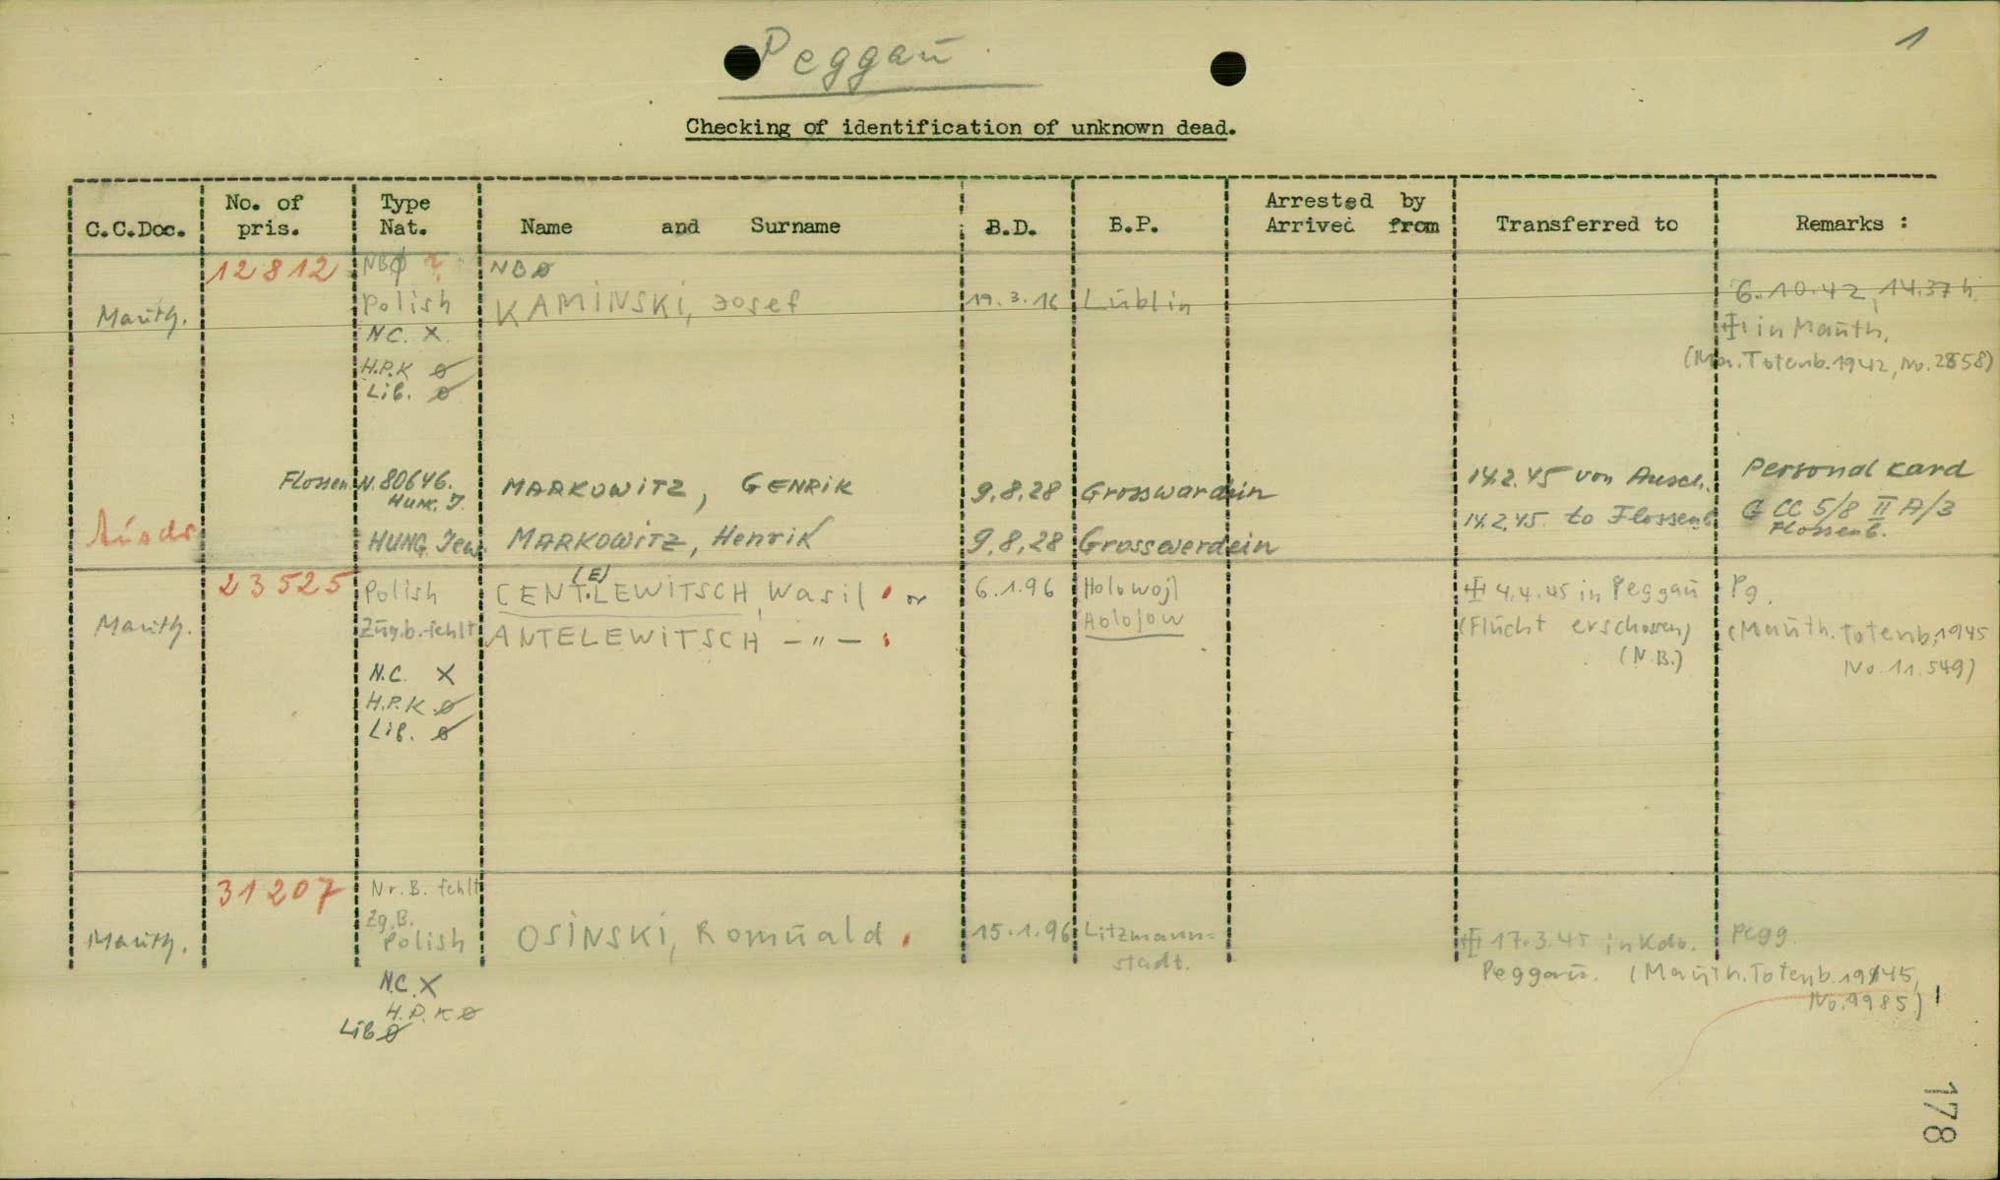 Peggaū
1
Checking of identification of unknown dead.
C.C.Doc. No. of pris. Type Nat. Name and Surname B.D. B.P. Arrested by Arrived from Transferred to Remarks :
12812 NBØ ? NBø
Mauth. Polish KAMINSKI, Josef 19.3.16 Lūblin 6.10.42, 14.37 h
N.C. X. in Maūth.
H.P.K ø (Mau. Totenb. 1942, No. 2858)
Lib. ø
Flossen N. 80646. MARKOWITZ, GENRIK 9.8.28 Grosswardein 14.2.45 von Ausch. Personal card
HUNG. J. 14.2.45 to Flossenb. G CC 5/8 II A/3
Flossenb.
HUNG. Jew. MARKOWITZ, Henrik 9.8.28 Grosswerdein
23525 Polish CENT.LEWITSCH, Wasil or 6.1.96 Holowoj 4.4.45 in Peggaū Pg.
(E)
Mauth. Zūg.b. fehlt ANTELEWITSCH — " — Holojow (Flūcht erschossen) (Maūth. Totenb. 1945
(N.B.) No. 11.549)
N.C. X
H.P.K. ø
Lib. ø
31207 Nr. B. fehlt
Zg.B.
Mauth. Polish OSINSKI, Romūald 15.1.96 Litzmann= 17.3.45 in Kdo. Pegg.
stadt. Peggaū. (Maūth. Totenb. 1945,
No. 9985)
N.C. X
H.P.K ø
Lib ø
178